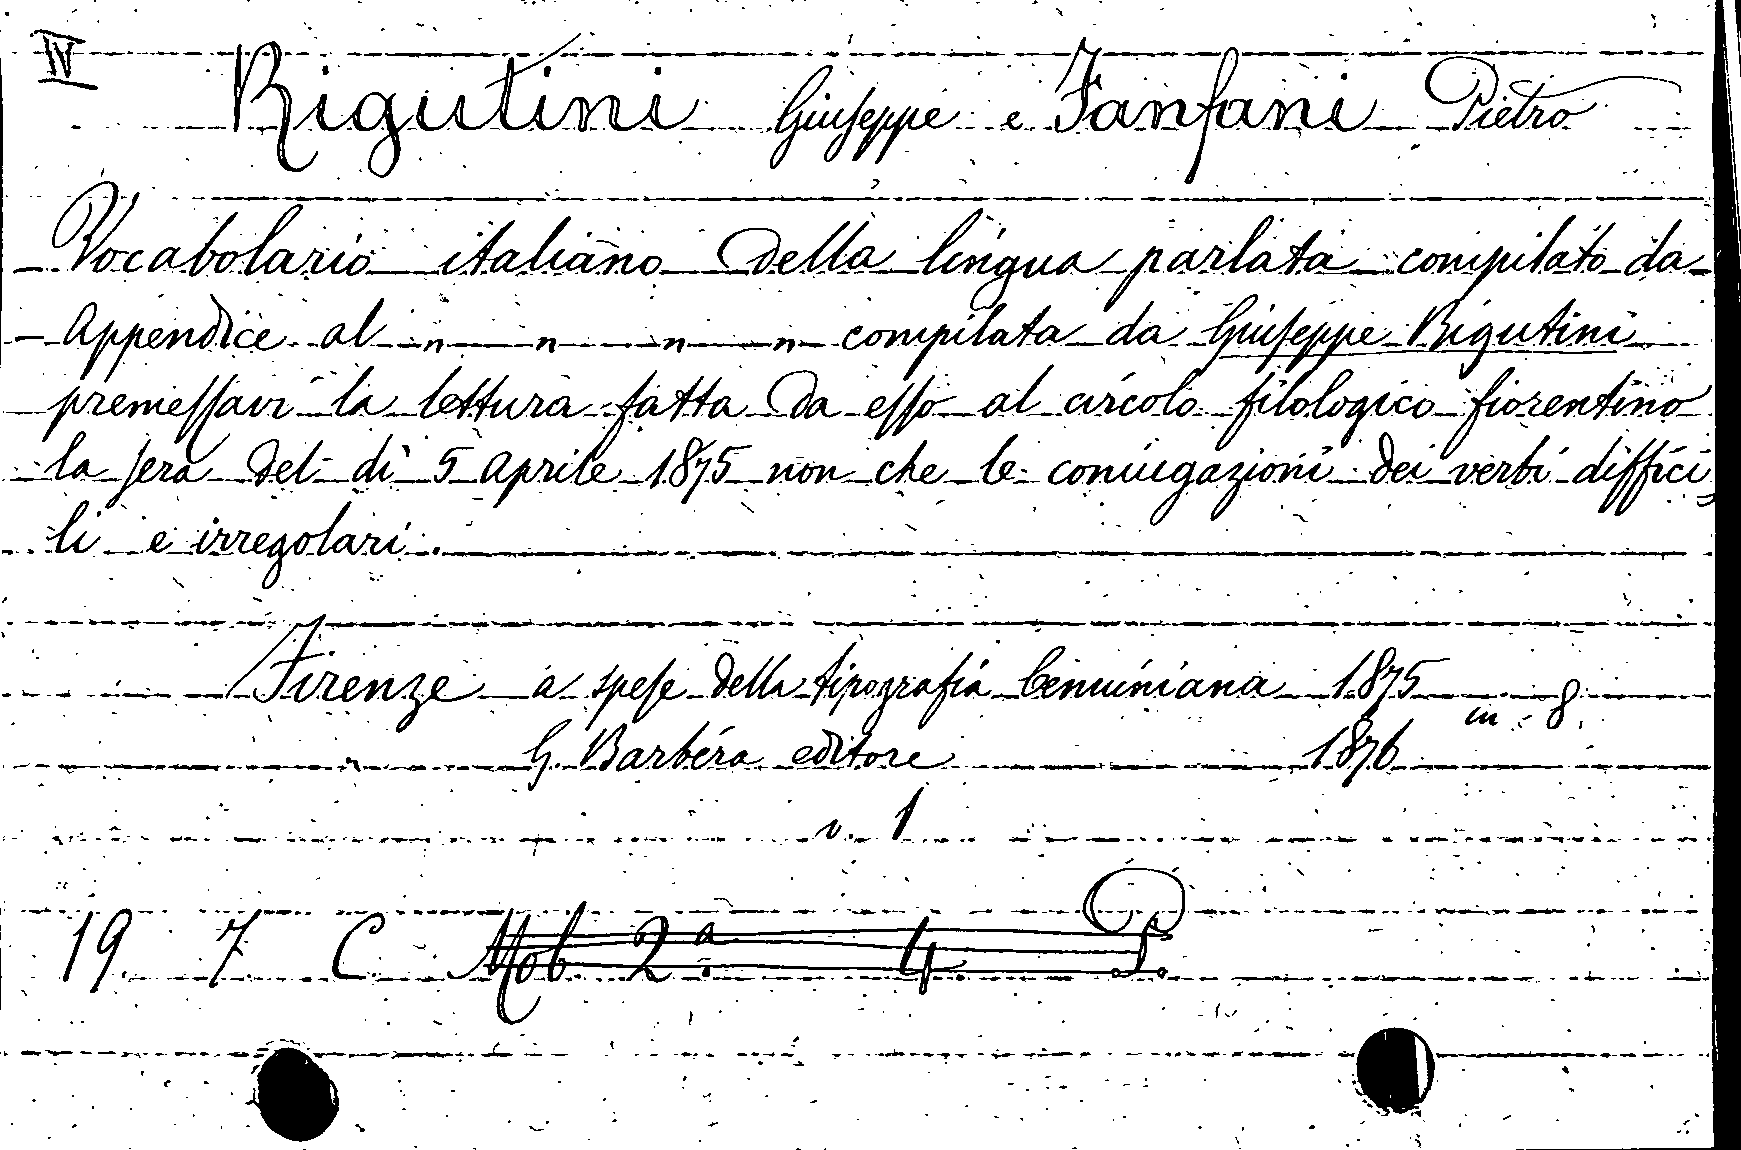 IV
Rigutini Giuseppe e Fanfani Pietro
Vocabolario italiano della lingua parlata compilato da
Appendice al " " " " compilata da Giuseppe Rigutini
premessavi la lettura fatta da esso al circolo filologico fiorentino
la sera del dì 5 Aprile 1875 non che le coniugazioni dei verbi diffici
li e irregolari.
Firenze a spese della tipografia Cenniniana 1875
in 8.
G. Barbéra editore 1876
v. 1
19. 7 C. Mob. 2ª. 4. P.